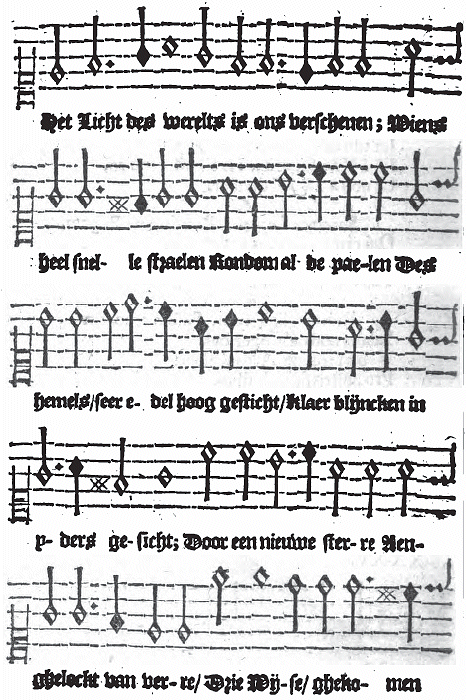 Het Licht des werelts is ons verschenen; Wiens
heel snel- le straelen Rondom al de pae-len Des
hemels/seer e- del hoog gesticht/Klaer blijncken in
y- ders ge- sicht; Door een nieuwe ster- re Aen-
ghelockt van ver- re/ Drie Wij-se/ gheko- men